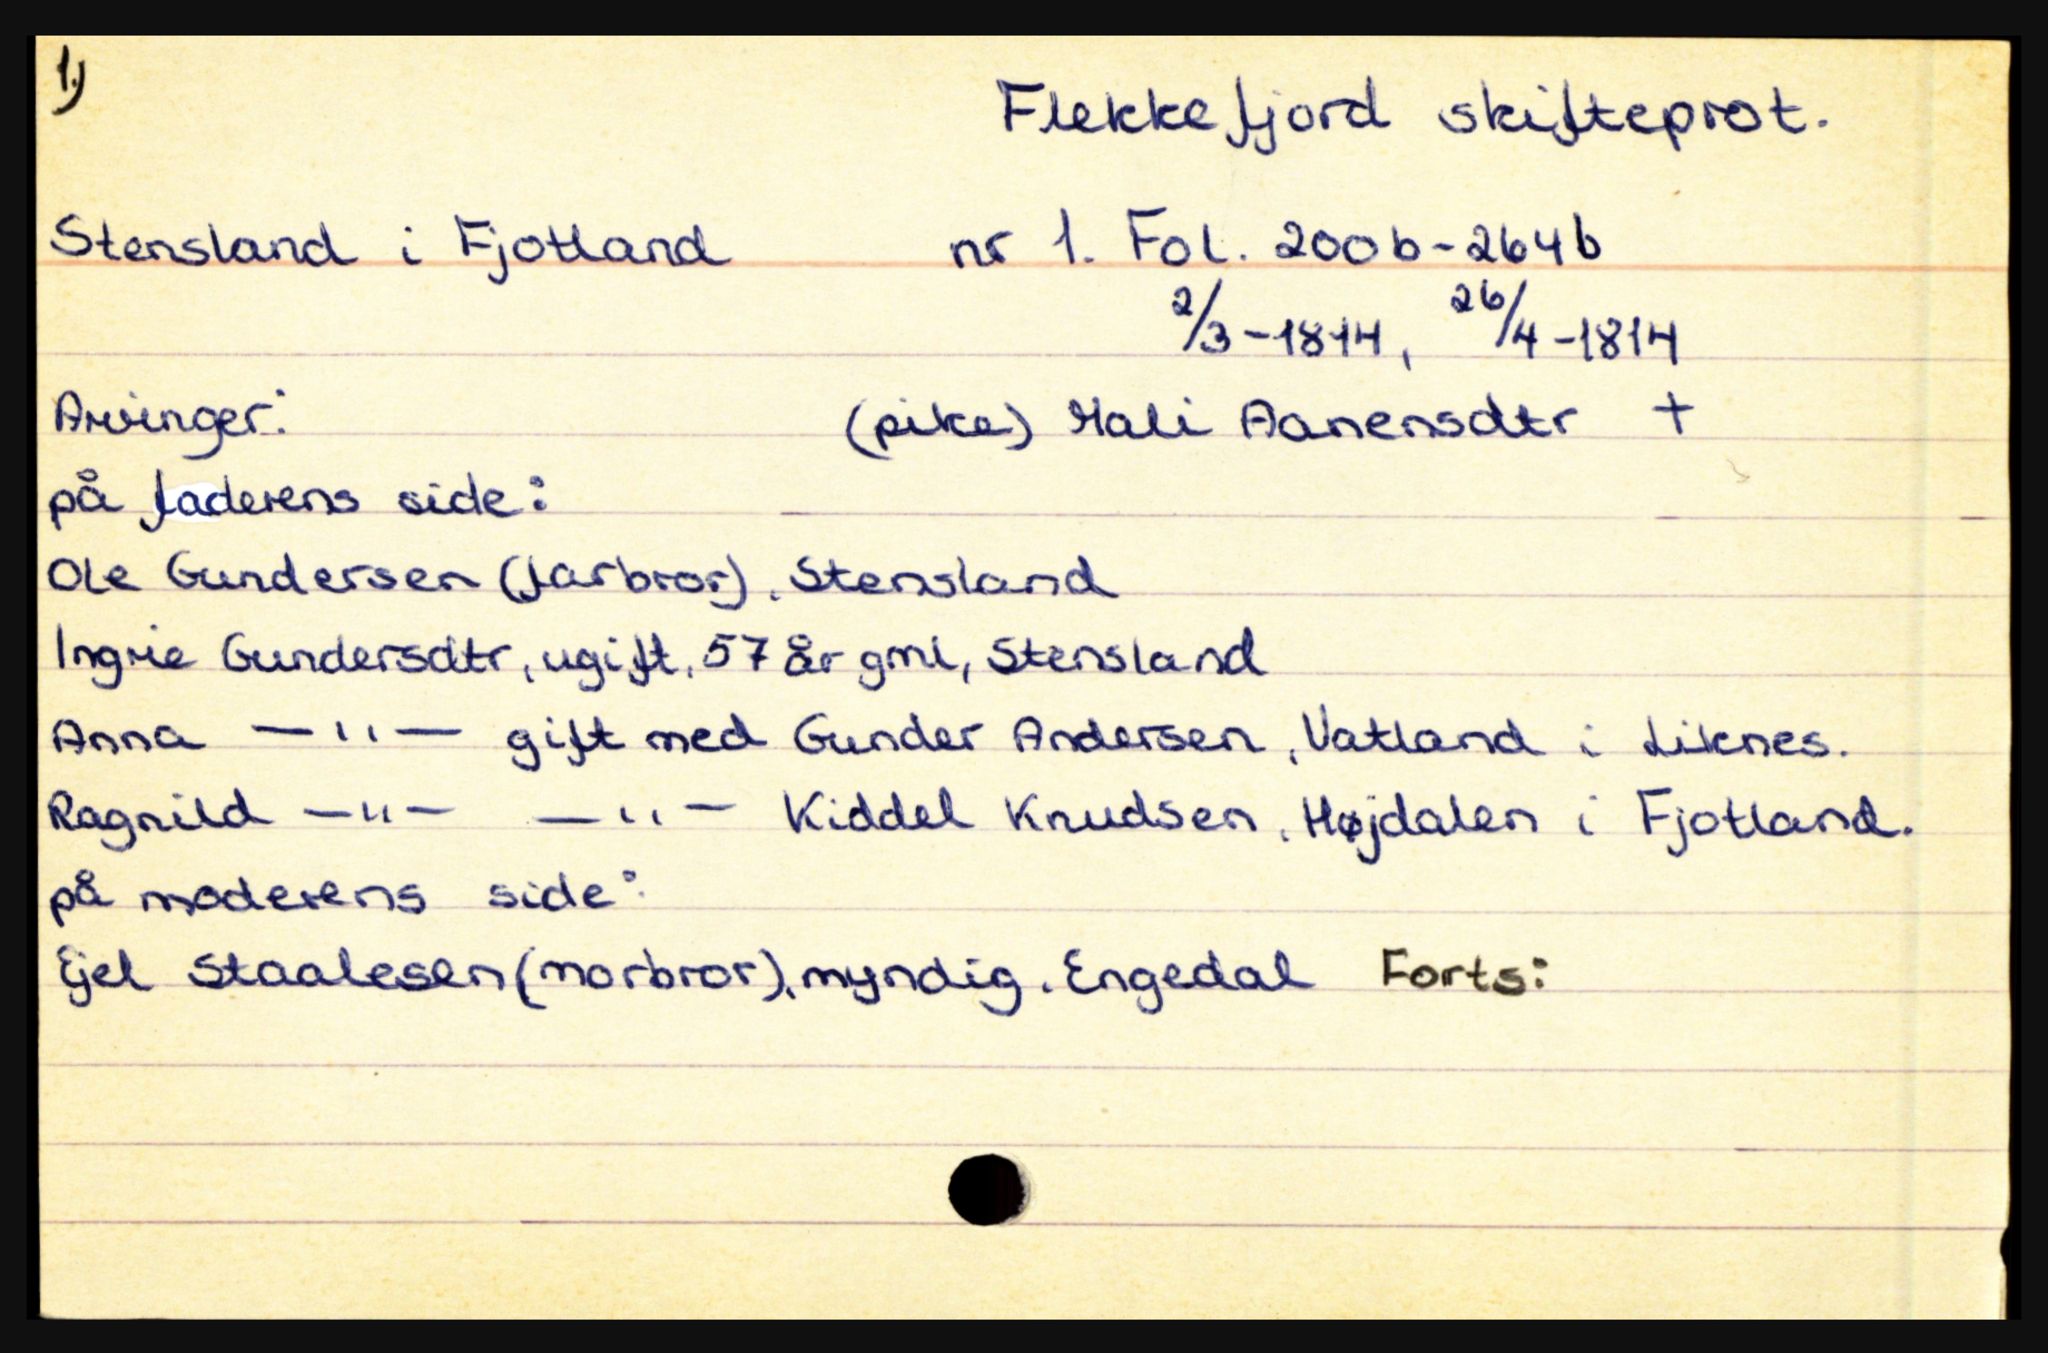 1)
Flekkefjord skifteprot.
Stensland i Fjotland nr 1. Fol. 200b-264b
2/3-1814, 26/4-1814
Arvinger: (pike) Mali Aanensdtr +
på faderens side:
Ole Gundersen (farbror), Stensland
Ingrie Gundersdtr, ugift, 57 år gml, Stensland
Anna —"— gift med Gunder Andersen, Vatland i Liknes.
Ragnild —"— —"— Kiddel Knudsen, Højdalen i Fjotland.
på moderens side:
Ejel Staalesen (morbror), myndig, Engedal Forts: